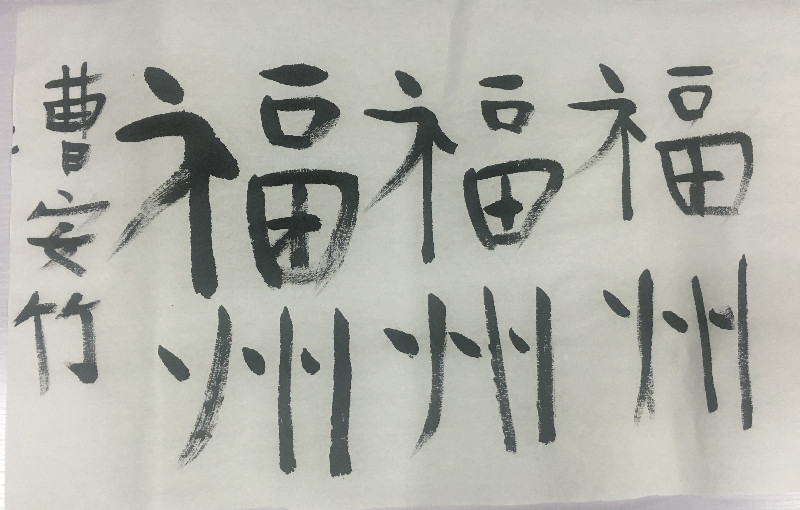 福州
福州
福州
曹安竹